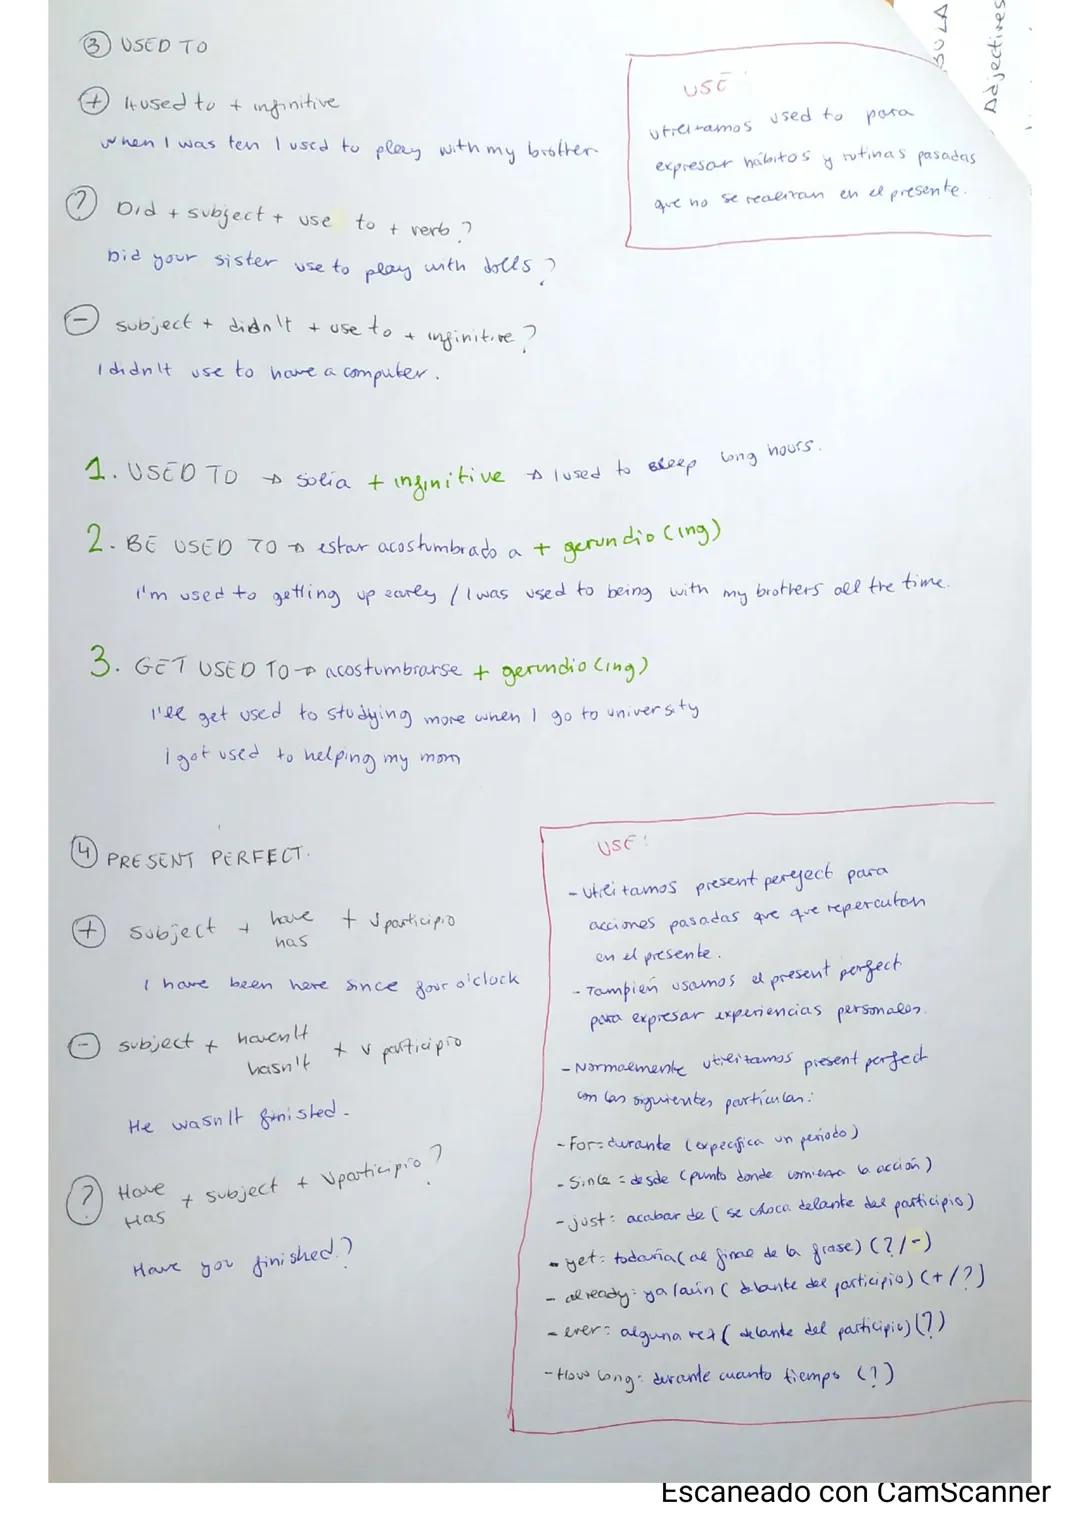 ③ USED TO
+ It used to + infinitive
When I was ten I used to play with my brother.
? Did + subject + use to + verb?
Did your sister use to play with dolls?
- subject + didn't + use to + infinitive?
I didn't use to have a computer.
USE:
utilizamos used to para
expresar hábitos y rutinas pasadas
que no se realizan en el presente.
BULA
Adjectives
1. USED TO → solía + infinitive → I used to sleep long hours.
2. BE USED TO → estar acostumbrado a + gerundio (ing)
I'm used to getting up early / I was used to being with my brothers all the time.
3. GET USED TO → acostumbrarse + gerundio (ing)
I'll get used to studying more when I go to university
i got used to helping my mom
④ PRESENT PERFECT.
+ Subject + have + V participio
has
I have been here since four o'clock
- subject + haven't + V participio
hasn't
He wasn't finished.
? Have + subject + V participio?
Has
Have you finished?
USE:
- Utilizamos present perfect para
acciones pasadas que que repercutan
en el presente.
- Tampien usamos el present perfect
para expresar experiencias personales.
- Normalmente utilizamos present perfect
con las siguientes particulas:
- For: durante (expecifica un periodo)
- Since = desde (punto donde comienza la acción)
- just: acabar de (se coloca delante del participio)
- yet: todavía (al final de la frase) (?/-)
- already: ya/aún (delante del participio) (+/?)
- ever: alguna vez (delante del participio) (?)
- How long: durante cuanto tiempo (?)
Escaneado con CamScanner